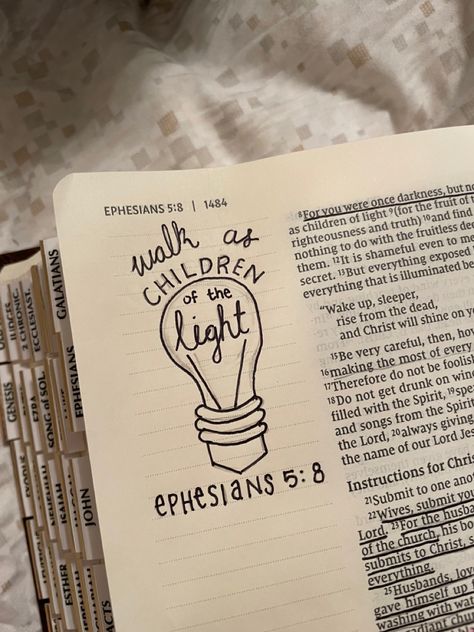 EPHESIANS 5:8 | 1484
walk as
CHILDREN
of the
light
ePHesiANS 5:8
8For you were once darkness, but
as children of light 9(for the fruit of
righteousness and truth) 10and find
nothing to do with the fruitless
them. 12It is shameful even to
secret. 13But everything exposed
everything that is illuminated
"Wake up, sleeper,
rise from the dead,
and Christ will shine on
15Be very careful, then,
16making the most of every
17Therefore do not be foolish
18Do not get drunk on wine
filled with the Spirit,
and songs from the Spirit
the Lord, 20always giving
the name of our Lord
Instructions for
21Submit to one
22Wives, submit
Lord. 23For the
of the church, his
submits to Christ,
everything.
25Husbands,
gave himself up
washing with
radiant church
GALATIANS
EPHESIANS
JOHN
ACTS
JUDGES
2
GENESIS
EZRA
SONG OF
EXODUS
NEHEMIAH
ISAIAH
ESTHER